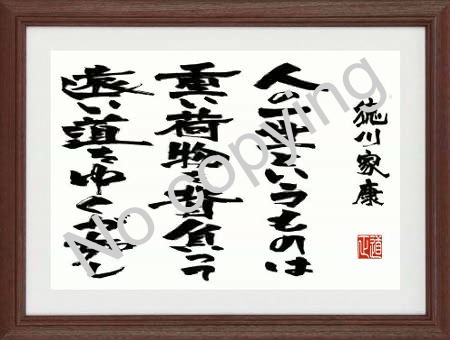 徳川家康
人の一生というものは
重い荷物を背負って
遠い道をゆくがごとし
No copying